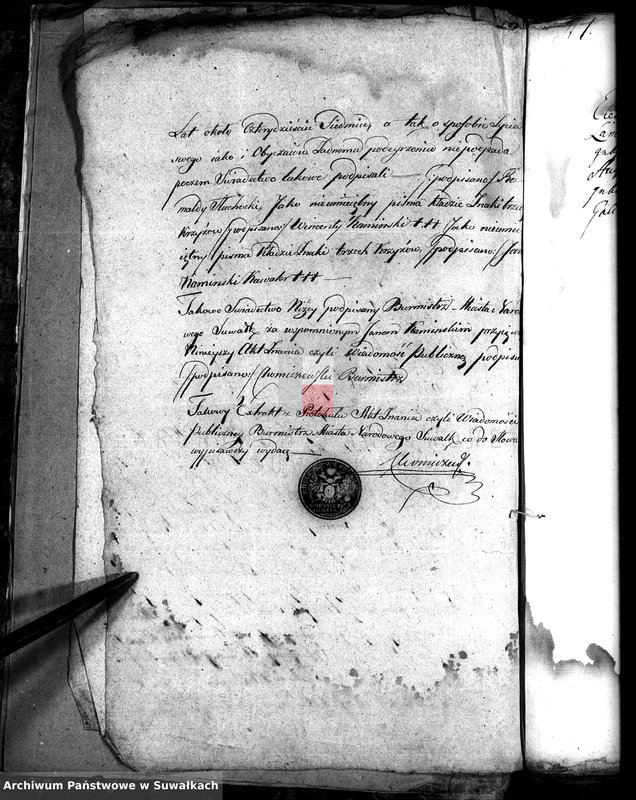 Lat około Czterdzieście Siedmiu, a tak o sposobie Życia
swego iako i Obyczaiów Żadnemu podeyrzeniu niepodpada
poczem Swiadectwo takowe podpisali — /podpisano/ Ro
mualdy Słuchocki, Jako nieumieiętny pisma Kładzie Znaki trzech
Krzyżów /podpisano/ Wincenty Kaminski +++ Jako nieumie
iętny pisma Kładzie Znaki trzech Krzyżów, /podpisano:/ Jan
Kaminski Kawaler +++ —
Takowe Swiadectwo Niżey podpisany Burmistrz Miasta Naro
wego Suwałk za wspomnionym Janem Kaminskim
Ninieyszy Akt Znania czyli Wiadomość Publiczney podpisu
/podpisano:/ Burmistrz
Takowy Extrakt z Protokułu Akt Znania czyli Wiadomości
Publiczney Burmistrz Miasta Narodowego Suwałk co do Słowa
wypisawszy wydaię —
Archiwum Państwowe w Suwałkach